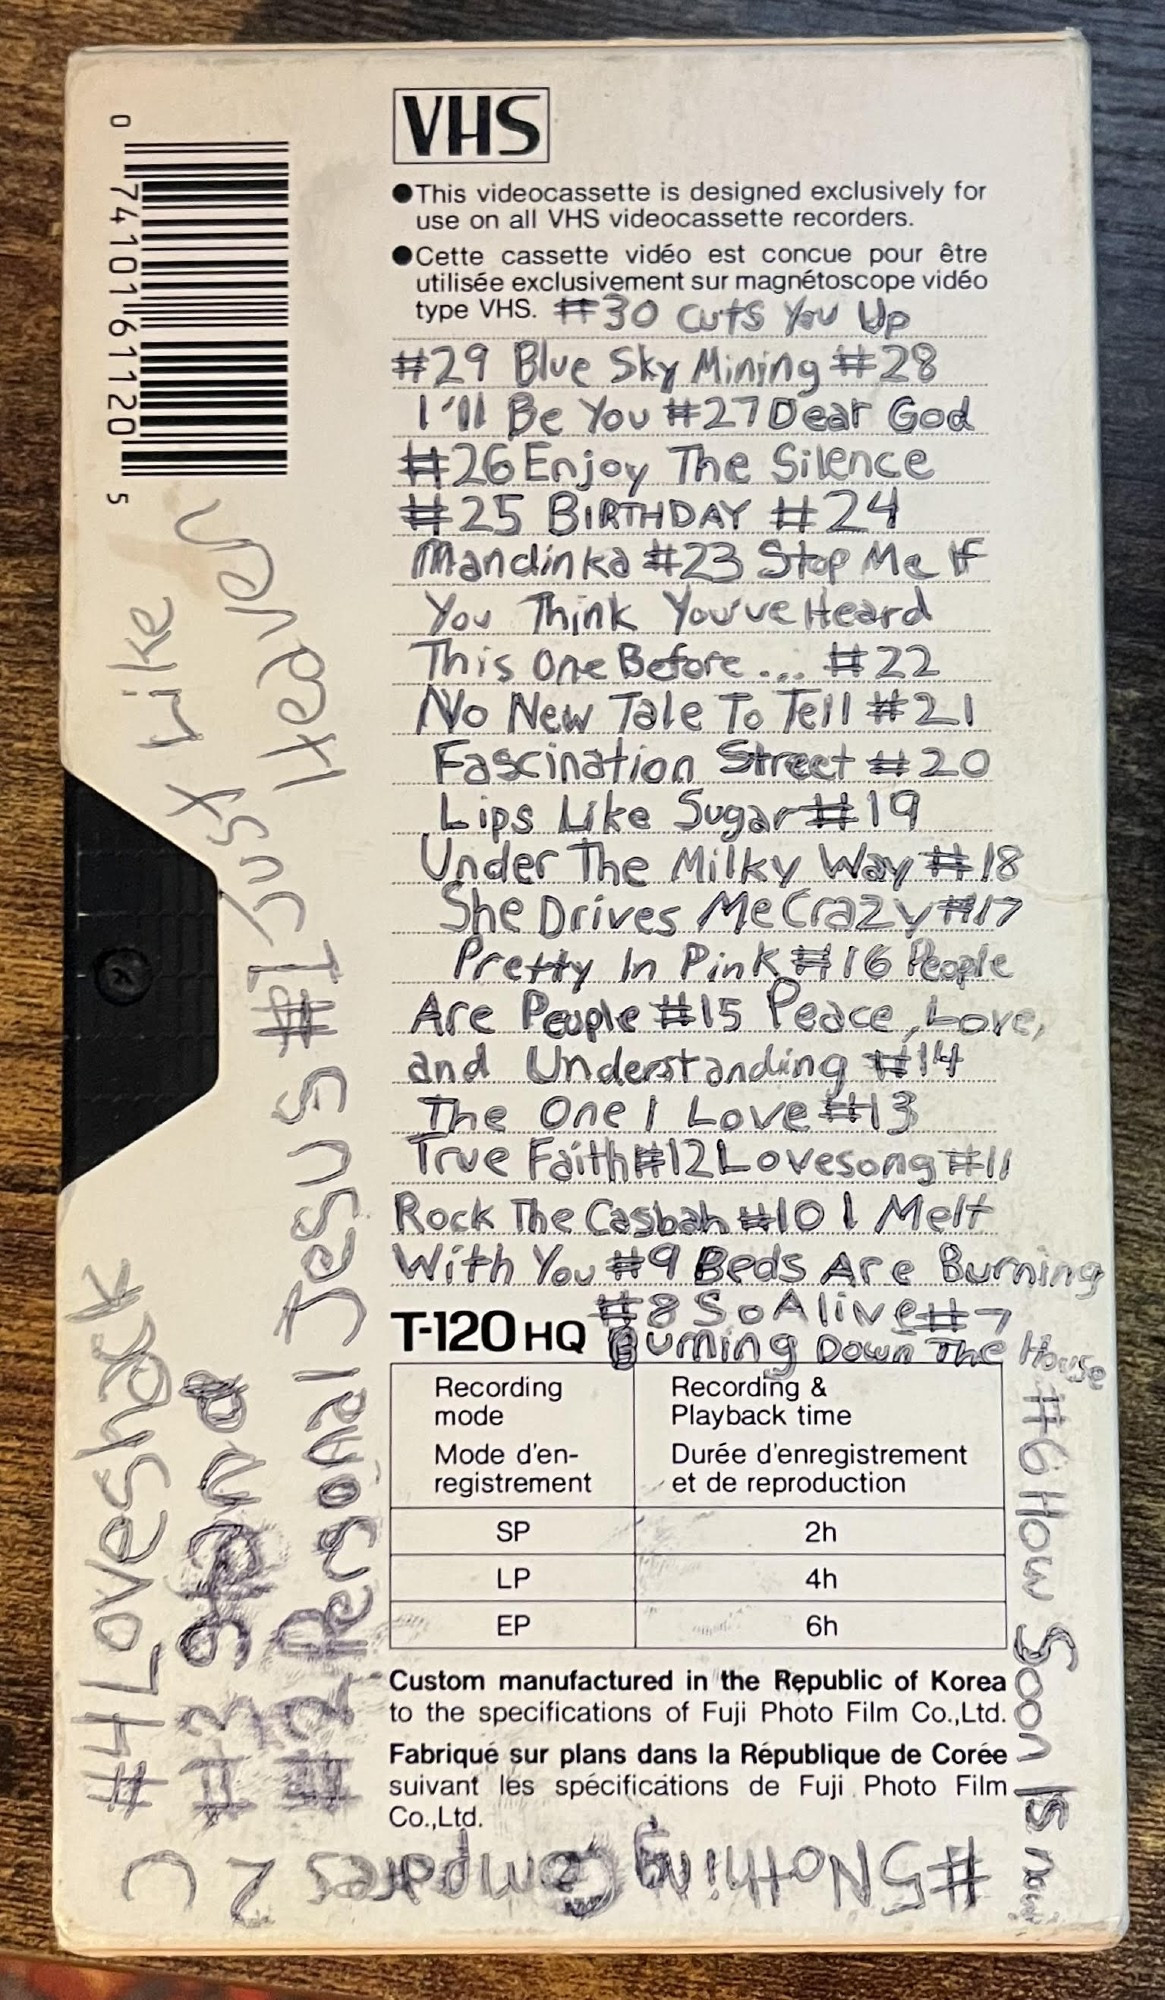 0 74101 61120 5
VHS
●This videocassette is designed exclusively for
use on all VHS videocassette recorders.
●Cette cassette vidéo est concue pour être
utilisée exclusivement sur magnétoscope vidéo
type VHS. #30 Cuts You Up
#29 Blue Sky Mining #28
I'll Be You #27 Dear God
#26 Enjoy The Silence
#25 BIRTHDAY #24
Mandinka #23 Stop Me If
You Think You've Heard
This One Before... #22
No New Tale To Tell #21
Fascination Street #20
Lips Like Sugar #19
Under The Milky Way #18
She Drives Me Crazy #17
Pretty In Pink #16 People
Are People #15 Peace, Love,
and Understanding #14
The One I Love #13
True Faith #12 Lovesong #11
Rock The Casbah #10 I Melt
With You #9 Beds Are Burning
#8 So Alive #7
T-120 HQ Burning Down The House
Recording mode
Recording & Playback time
Mode d'en-
registrement
Durée d'enregistrement
et de reproduction
SP 2h
LP 4h
EP 6h
Custom manufactured in the Republic of Korea
to the specifications of Fuji Photo Film Co.,Ltd.
Fabriqué sur plans dans la République de Corée
suivant les spécifications de Fuji Photo Film
Co.,Ltd.
#6 How Soon Is Now
#5 Nothing Compares 2
U
#4 Loveshack
#3
#2 Personal Jesus #1 Just Like
Heaven